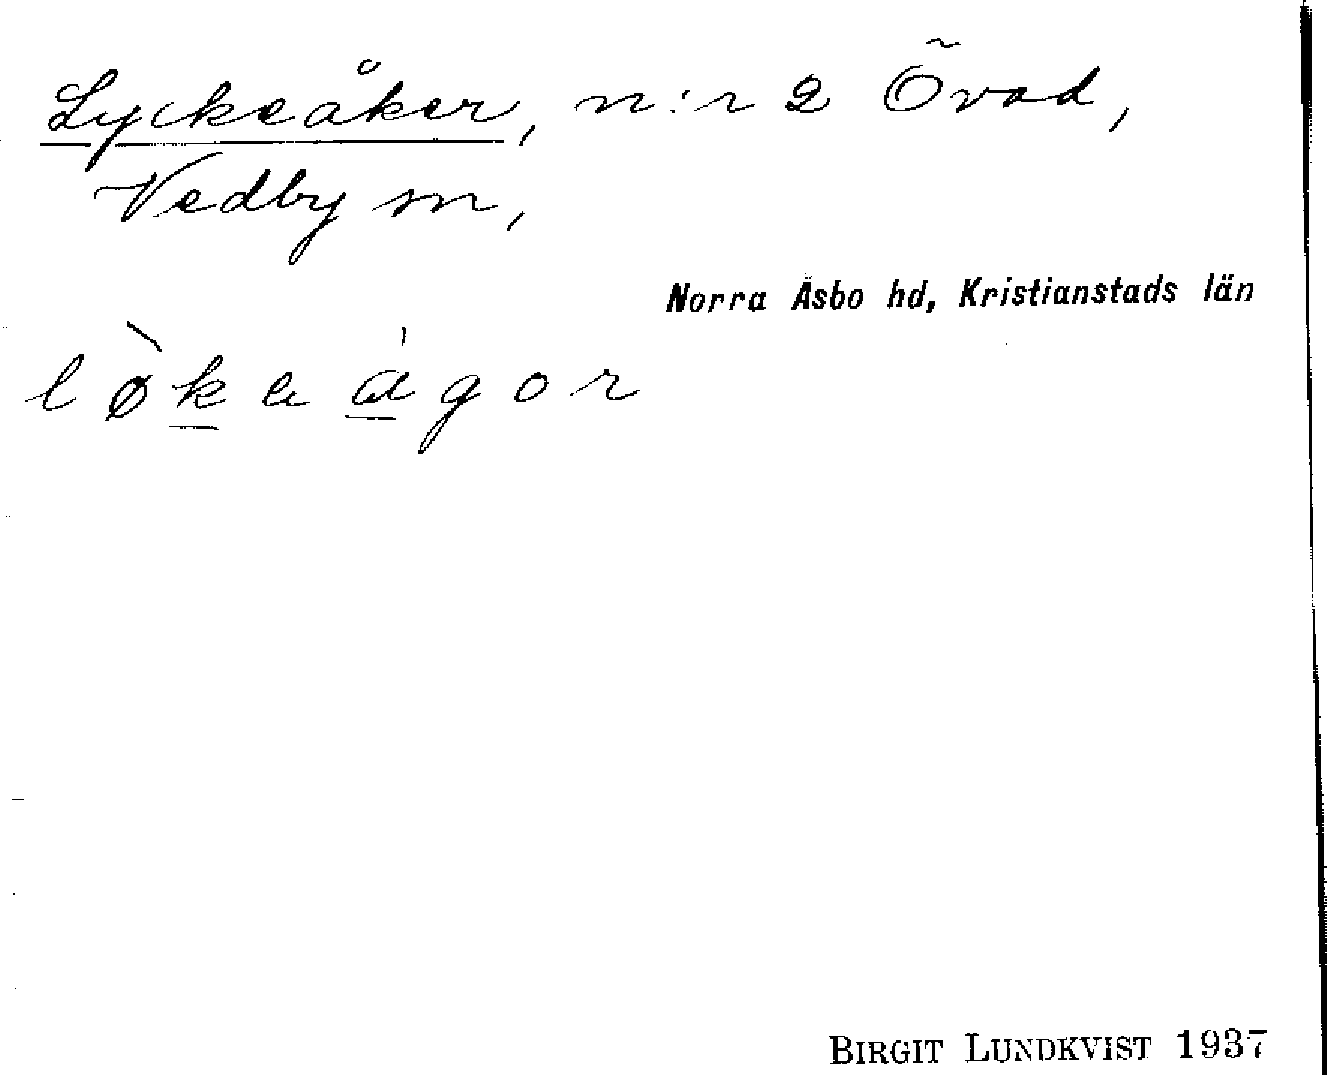 Lyckeåker, n:r 2 Övad,
Vedby sn,
Norra Åsbo hd, Kristianstads län
lø̀keágor
BIRGIT LUNDKVIST 1937